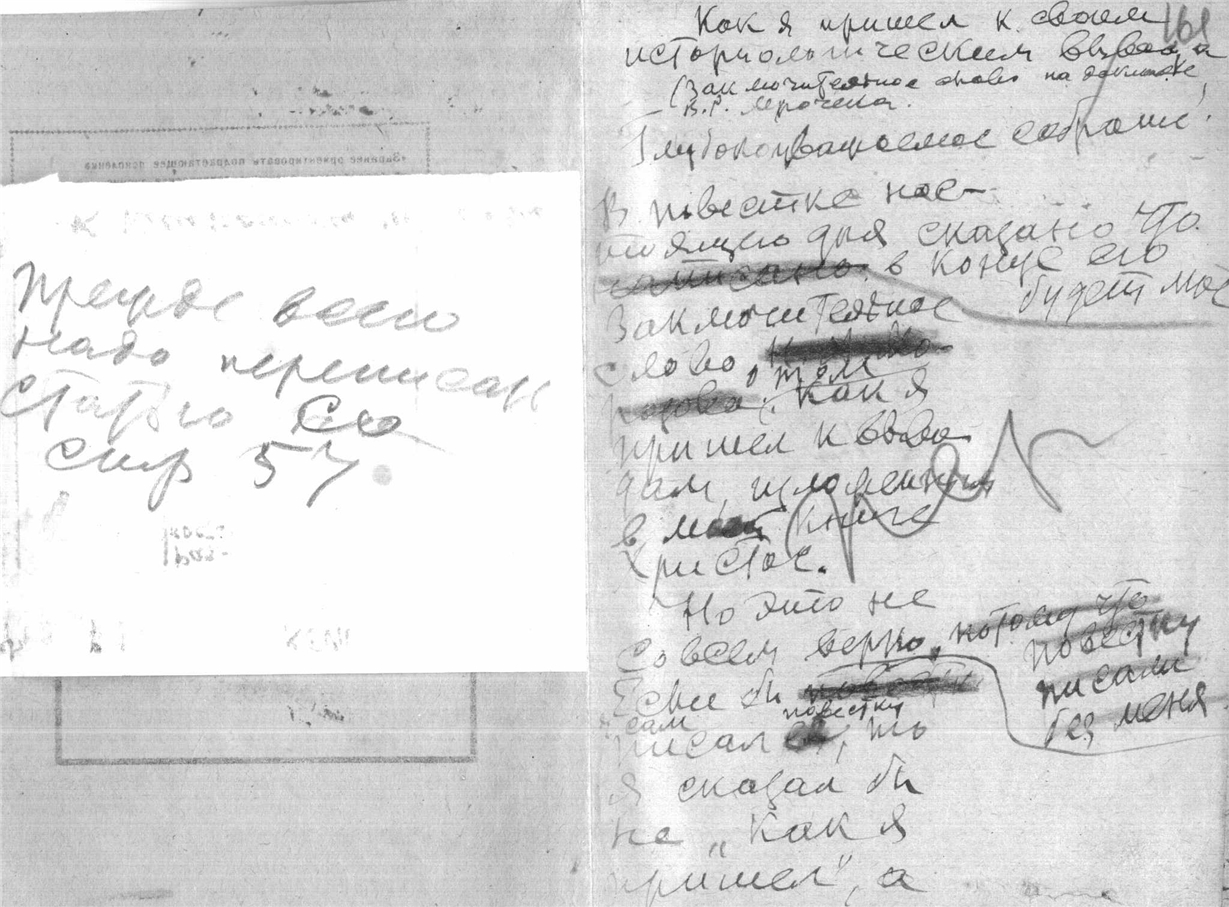 «Заранее ориентировать подрастающее поколение
Прежде всего
надо переписать
статью со
стр 57.
161
Как я пришел к своим
историологическим выводам
(Заключительное слово на докладе
В.Р. Мрочека.
Глубокоуважаемое собрание!
В повестке нас-
тоящего дня сказано что
написано в конце его
будет моё
Заключительное
слово, о том
Как я
пришел к выво
дам, изложенным
в моей книге
Христос.
Но это не
совсем верно, потому что
повестку
писали
без меня
Если бы
сам повестку
писал, то
я сказал бы
не „Как я
пришел", а